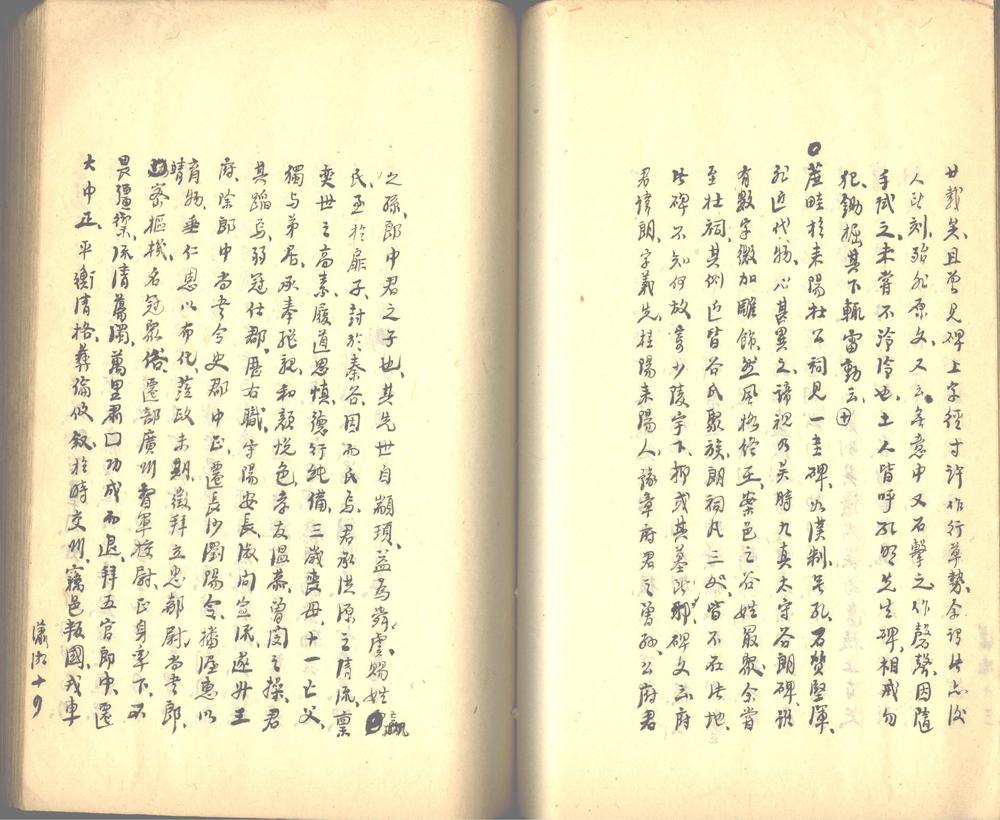 廿載矣、且曾见碑上字徑寸许、作行草勢、余谓此六後
人所刻、殆非原文、又云、冬意中又石擊之作磬聲、因隨
手试之、未嘗不泠泠也、土人皆呼孔明先生碑、相戒勿
犯、鋤掘其下、輒雷動云、
蓙畦於耒陽杜公祠見一圭碑、以漢制、其孔、石贊堅渾、
非近代物、心甚異之、諦視乃吴時九真太守谷朗碑、雖
有數字微加雕飾、然風格终在、案邑之谷姓最聚、余嘗
至杜祠、其側近皆谷氏聚族、朗祠凡二处、皆不在此地、
此碑不知何故寄少陵宇下、抑或其墓此邪、碑文云、府
君諱朗、字義先、桂陽耒陽人、豫章府君之曾孙、公府君
之孫、郎中君之子也、其先世自顓頊、益為舜虞、賜姓嬴
氏、至於扉子、封於秦谷、因而氏焉、君承洪源之清流、稟
奕世之高素、履道思慎、德行纯備、三歲喪母、十一亡父、
獨与弟居、承奉继親、和顏悦色、孝友温恭、曾閔之操、君
其蹈焉、弱冠仕郡、歷右職、守陽安長、汝问宣流、遂升王
府、除郎中尚书令史、郡中正、遷長沙瀏陽令、播渥惠以
育物、垂仁恩以布化、蒞政未期、徵拜立忠都尉、尚书郎、
靖密樞機、名冠眾俗、遷部廣州督軍校尉、正身率下、不
畏彊禦、流清蕩濁、萬里肅囗、功成而退、拜五官郎中、遷
大中正、平衡清格、彝倫攸叙、於時交州、竊邑叛國、戎車
瀟湘十夕